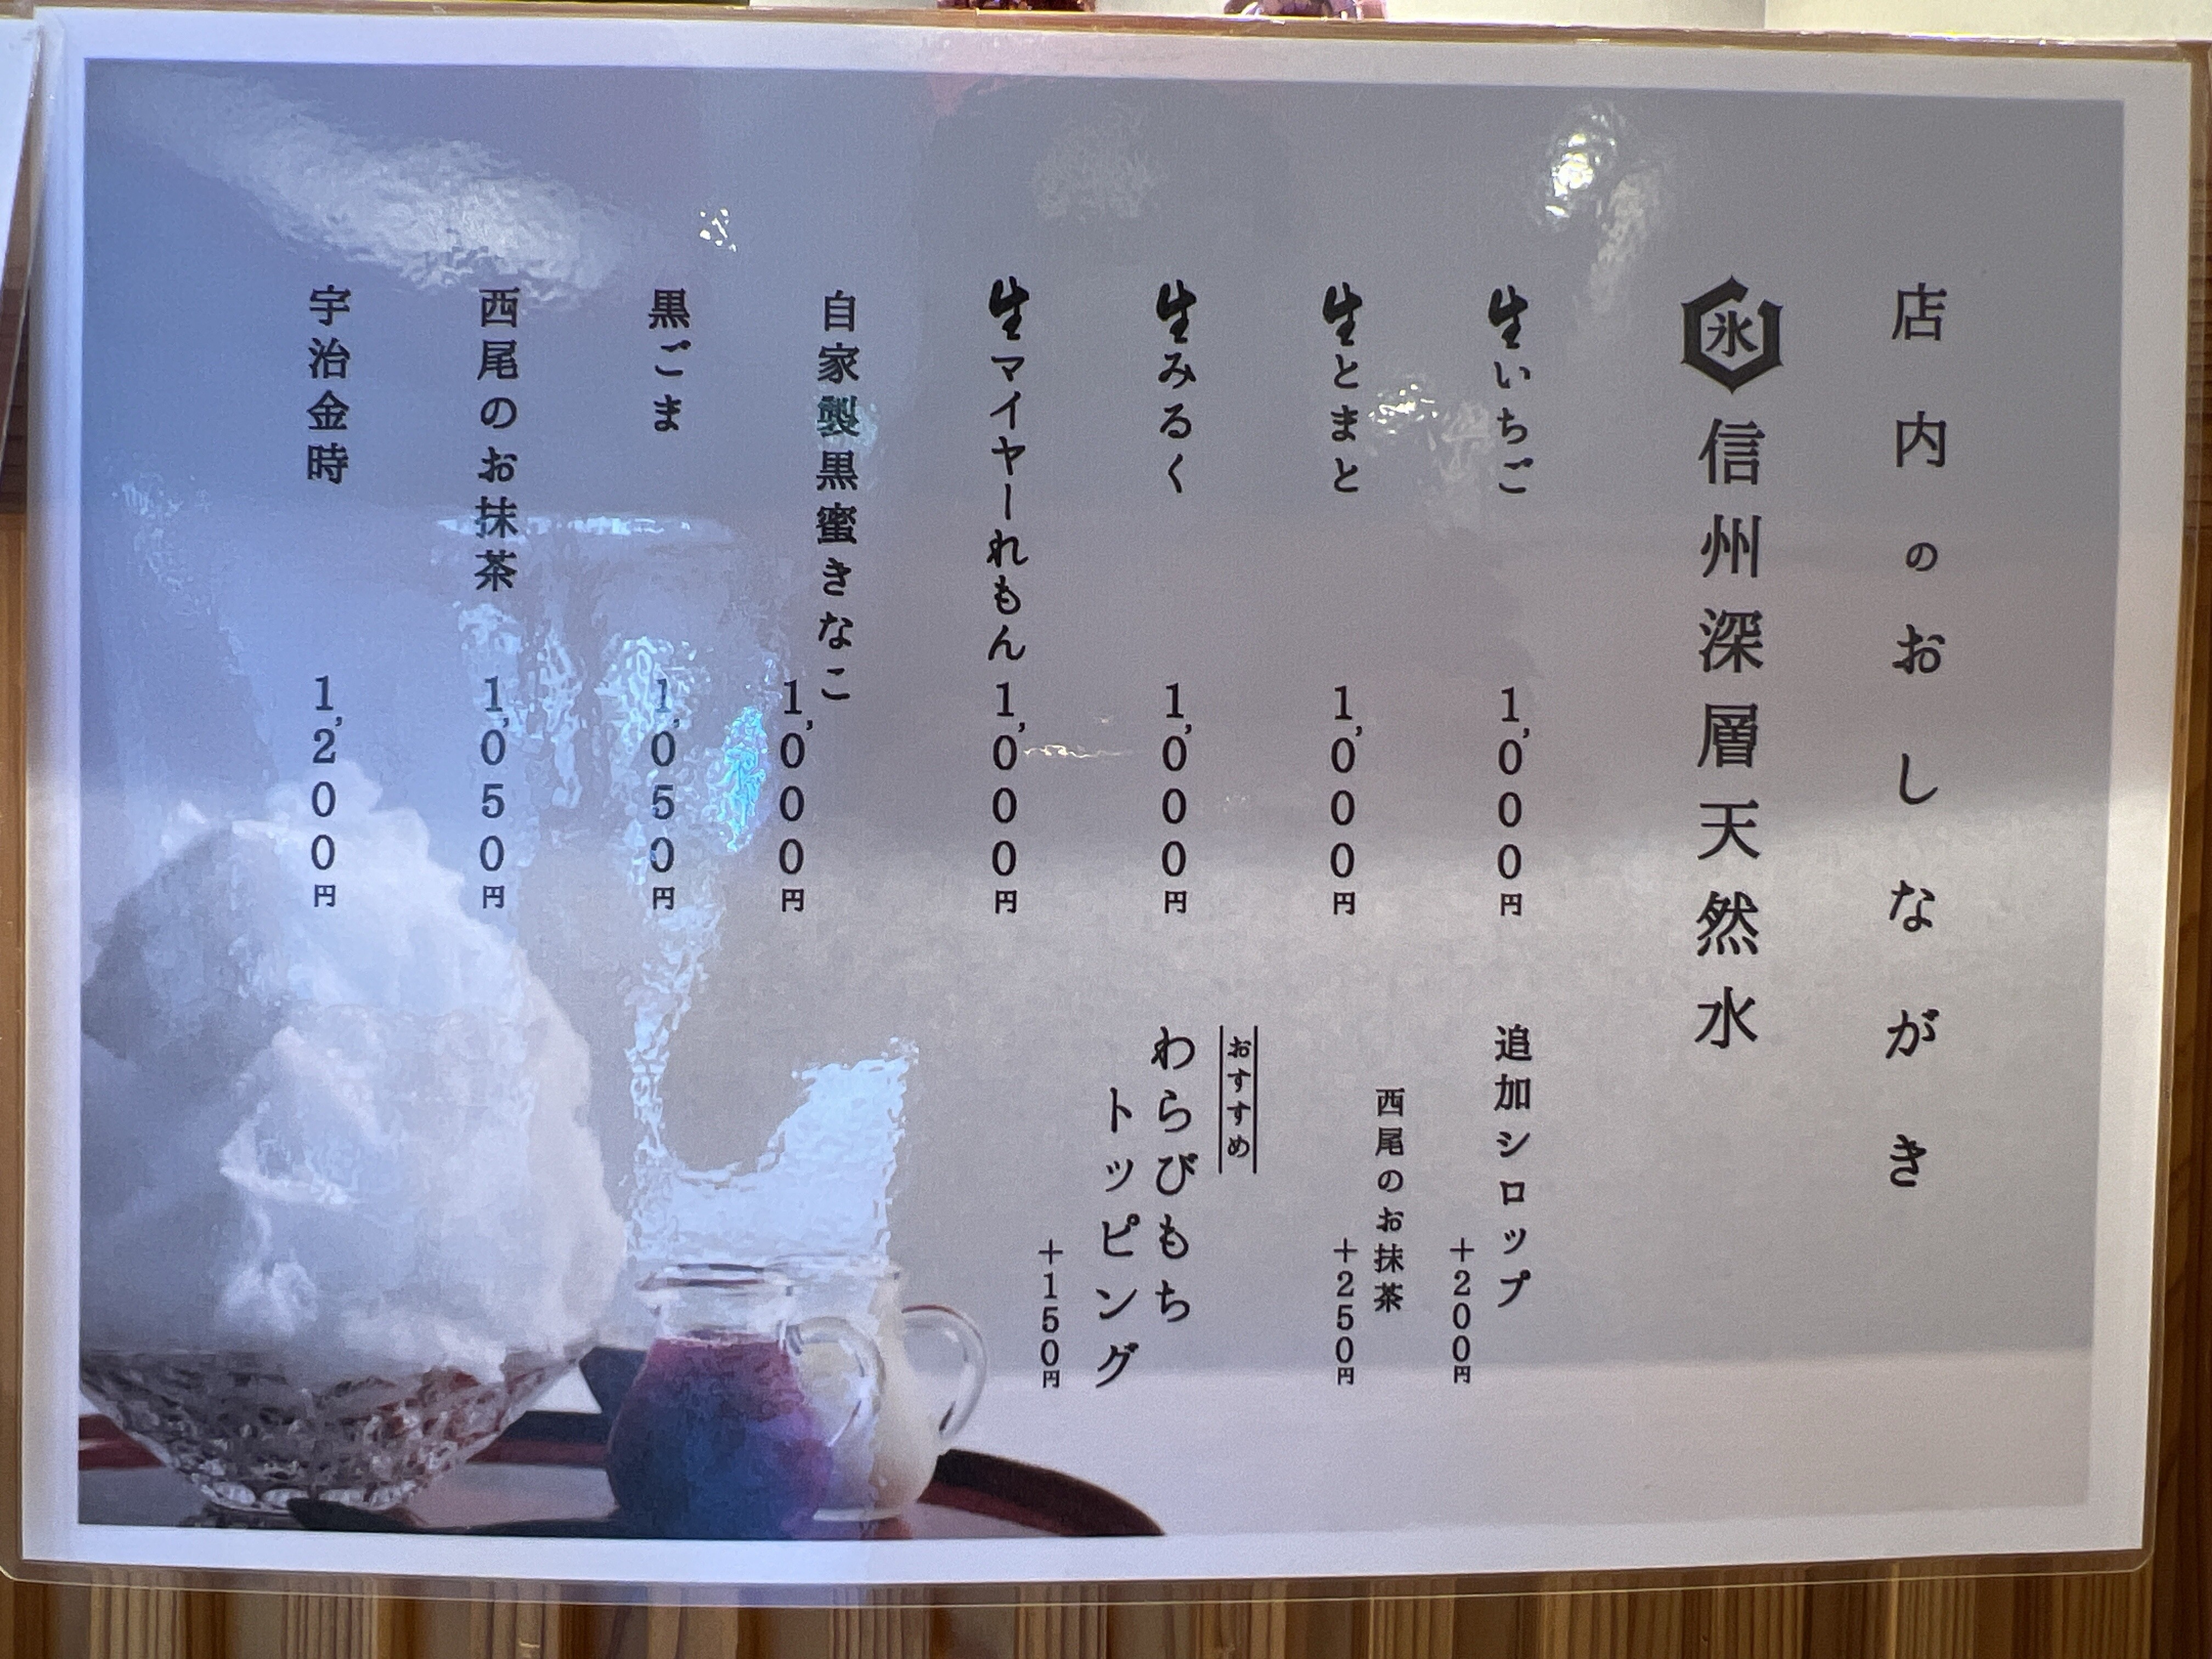 店内のおしながき
氷
信州深層天然水
生いちご 1,000円
生とまと 1,000円
生みるく 1,000円
生マイヤーれもん 1,000円
自家製黒蜜きなこ 1,000円
黒ごま 1,050円
西尾のお抹茶 1,050円
宇治金時 1,200円
追加シロップ
+200円
西尾のお抹茶
+250円
おすすめ
わらびもち
トッピング
+150円